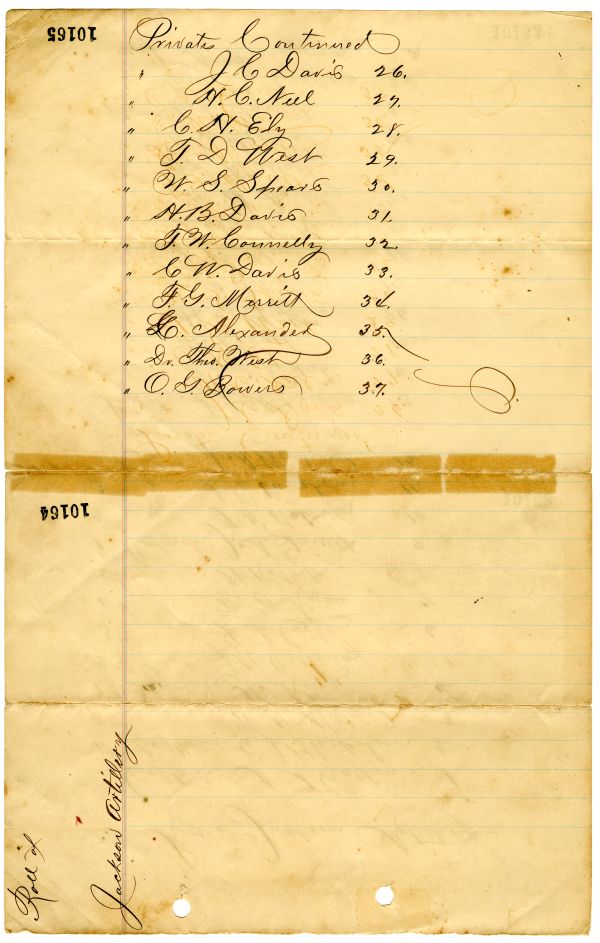 10165
Privates Continued
" J C Davis 26.
" H. C. Neel 27.
" C. H. Ely 28.
" T. D West 29.
" W. S. Spears 30.
" H. B. Davis 31.
" T. W. Connelly 32.
" C W. Davis 33.
" F. G. Merritt 34.
" Alexander 35.
" Dr. Theo. West 36.
" O. G. Bowers 37.
10164
Roll of
Jackson Artillery